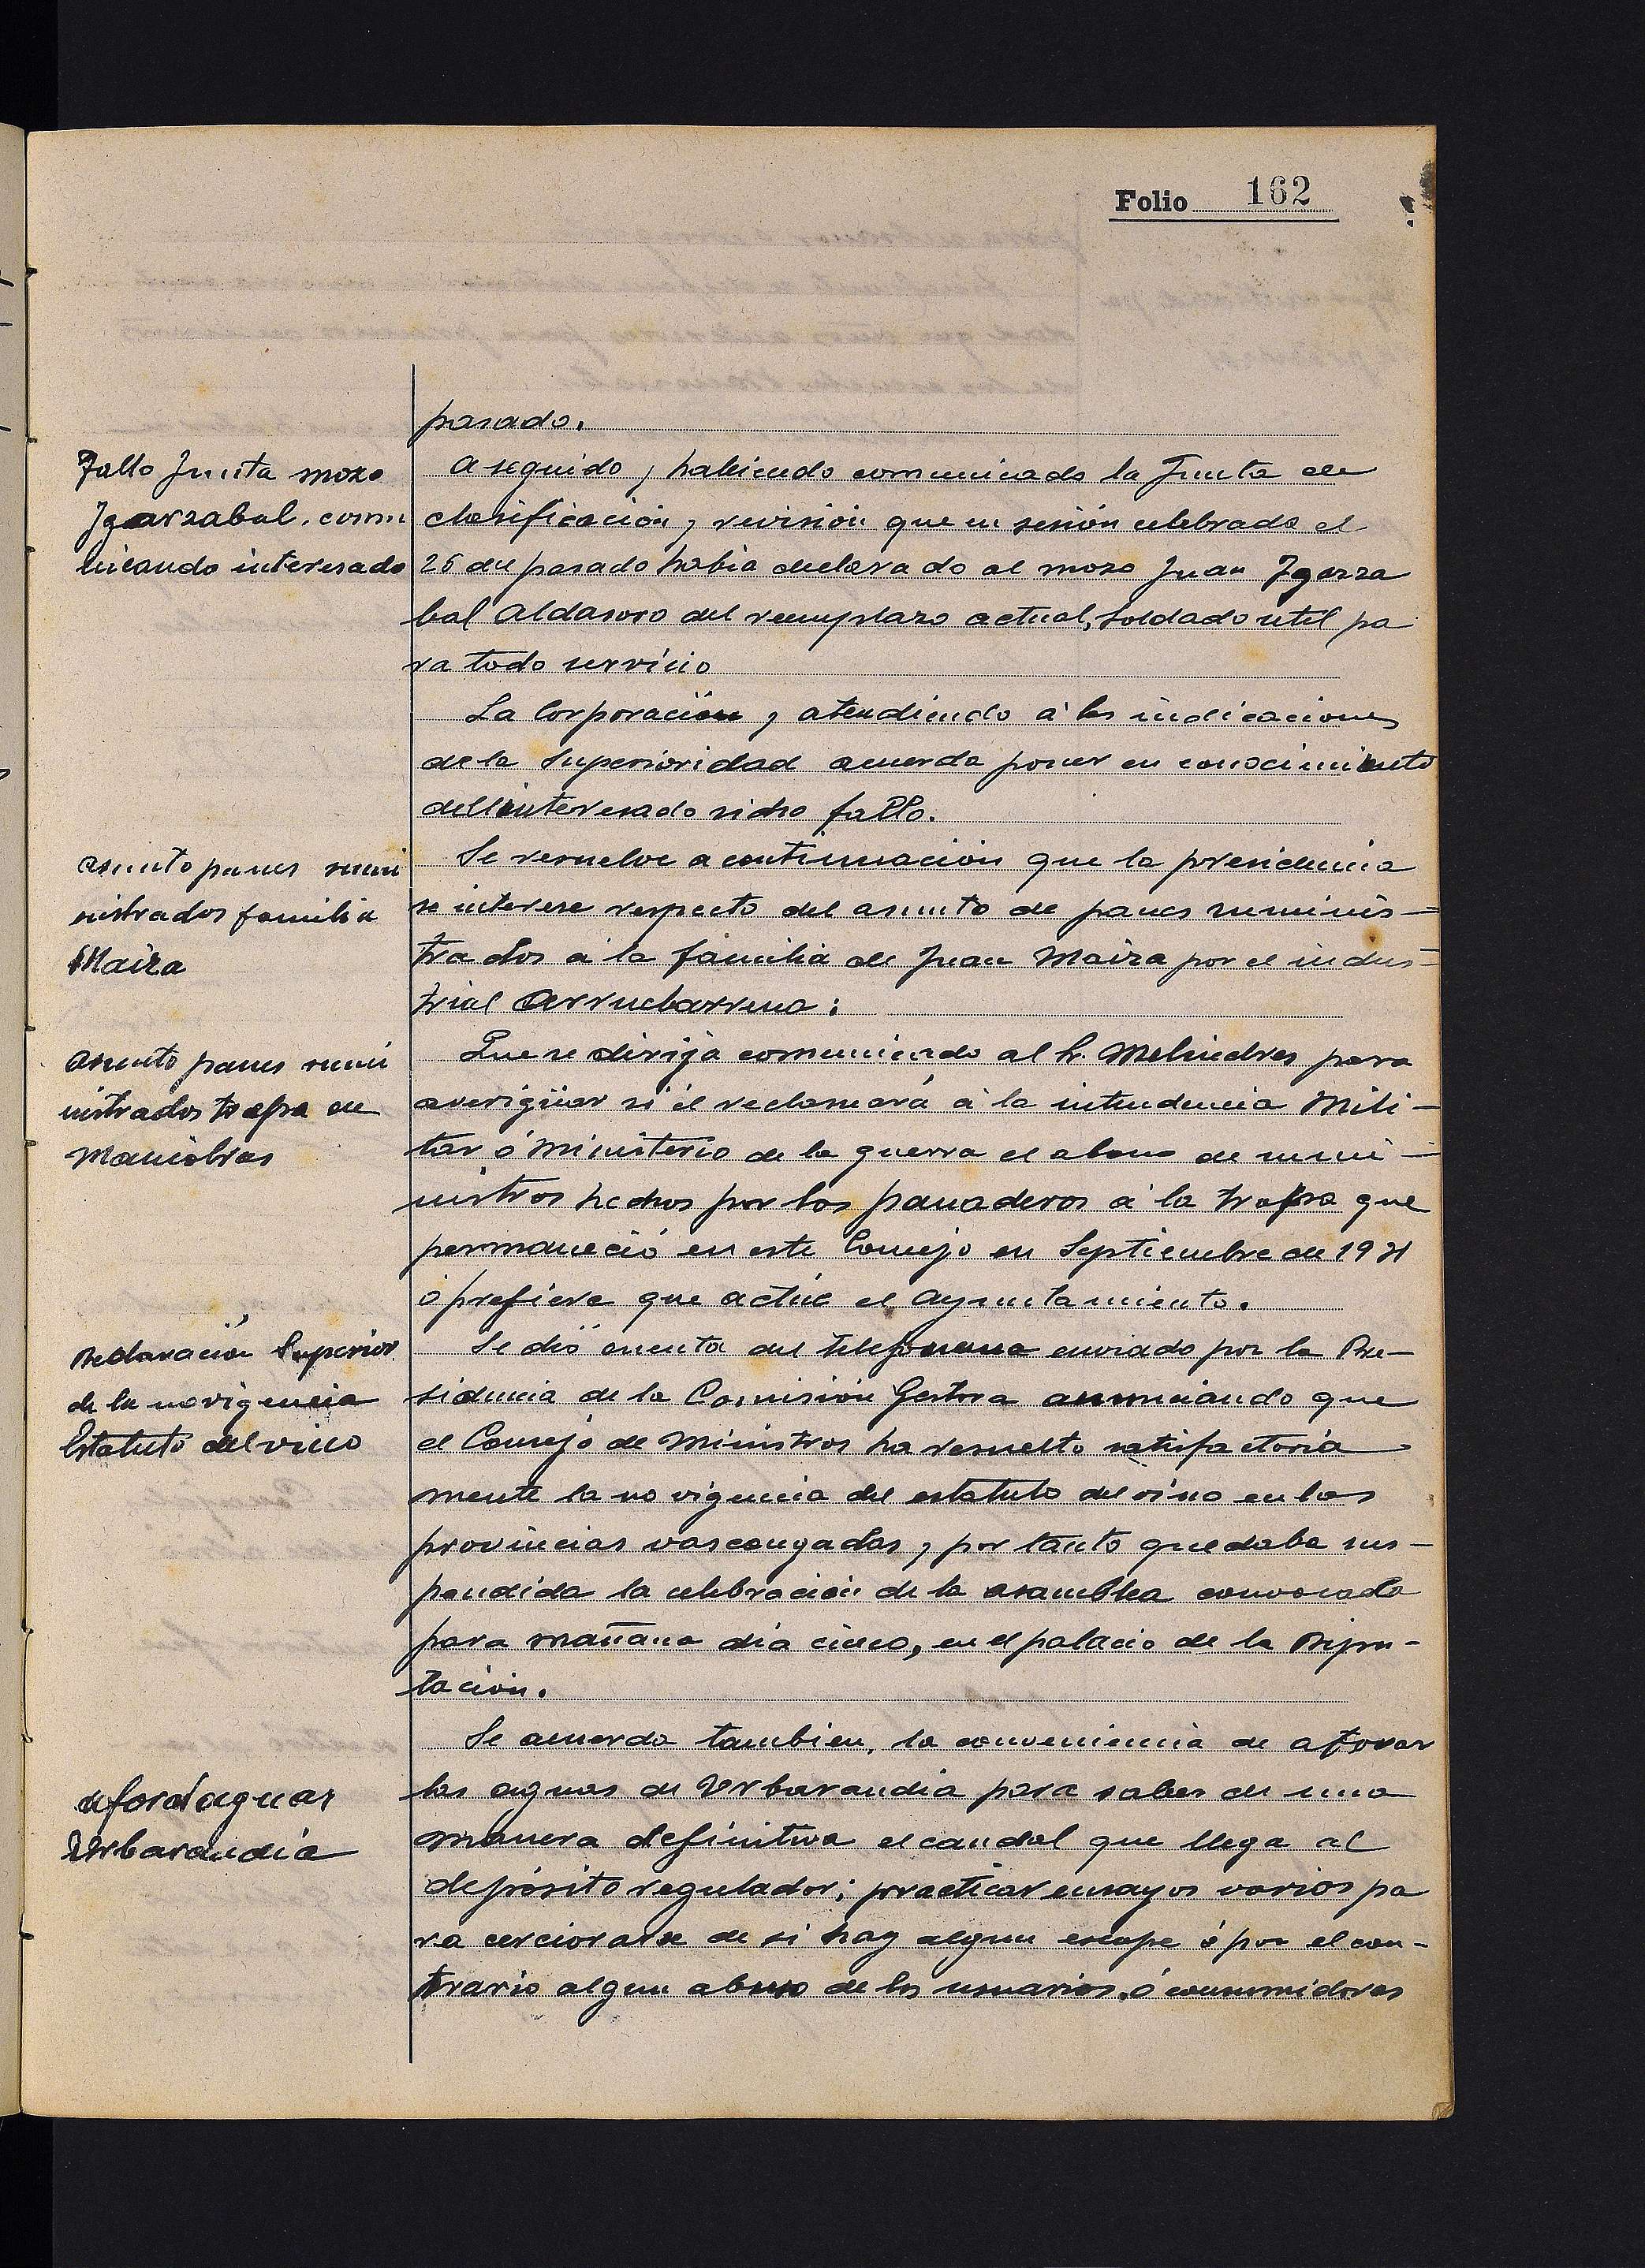 Folio 162
pasado.
Fallo Junta mozo
Igarzabal. comu
nicando interesado
A seguido, habiendo comunicado la Junta de
clasificación y revisión que en sesión celebrada el
26 del pasado habia declarado al mozo Juan Igarza
bal Aldasoro del reemplazo actual, soldado util pa
ra todo servicio
La Corporación, atendiendo á las indicaciones
de la Superioridad acuerda poner en conocimiento
del interesado dicho fallo.
Asunto panes sumi
nistrados familia
Maiza
Se resuelve a continuación que la presidencia
se interese respecto del asunto de panes suminis-
trados á la familia de Juan Maiza por el indus-
trial Arruebarrena:
Asunto panes sumi
nistrados tropa en
Maniobras
Que se dirija comunicado al Sr. Melendres para
averigüar si él reclamará á la intendencia Mili-
tar ó Ministerio de la guerra el abono de sumi-
nistros hechos por los panaderos á la tropa que
permaneció en este Concejo en Septiembre de 1931
ó prefiere que actúe el Ayuntamiento.
Declaración Superior
de la no vigencia
Estatuto del vino
Se dió cuenta del telefonema enviado por la Pre-
sidencia de la Comisión Gestora anunciando que
el Consejo de Ministros ha resuelto satisfactoria
mente la no vigencia del estatuto del vino en las
provincias vascongadas, por tanto quedaba sus-
pendida la celebración de la asamblea convocada
para mañana día cinco, en el palacio de la Dipu-
tación.
Aforo aguas
Urbarandia
Se acuerda tambien, la conveniencia de aforar
las aguas de Urbarandia para saber de una
manera definitiva el caudal que llega al
depósito regulador; practicar ensayos varios pa
ra cerciorarse de si hay algun escape ó por el con-
trario algun abuso de los usuarios ó consumidores